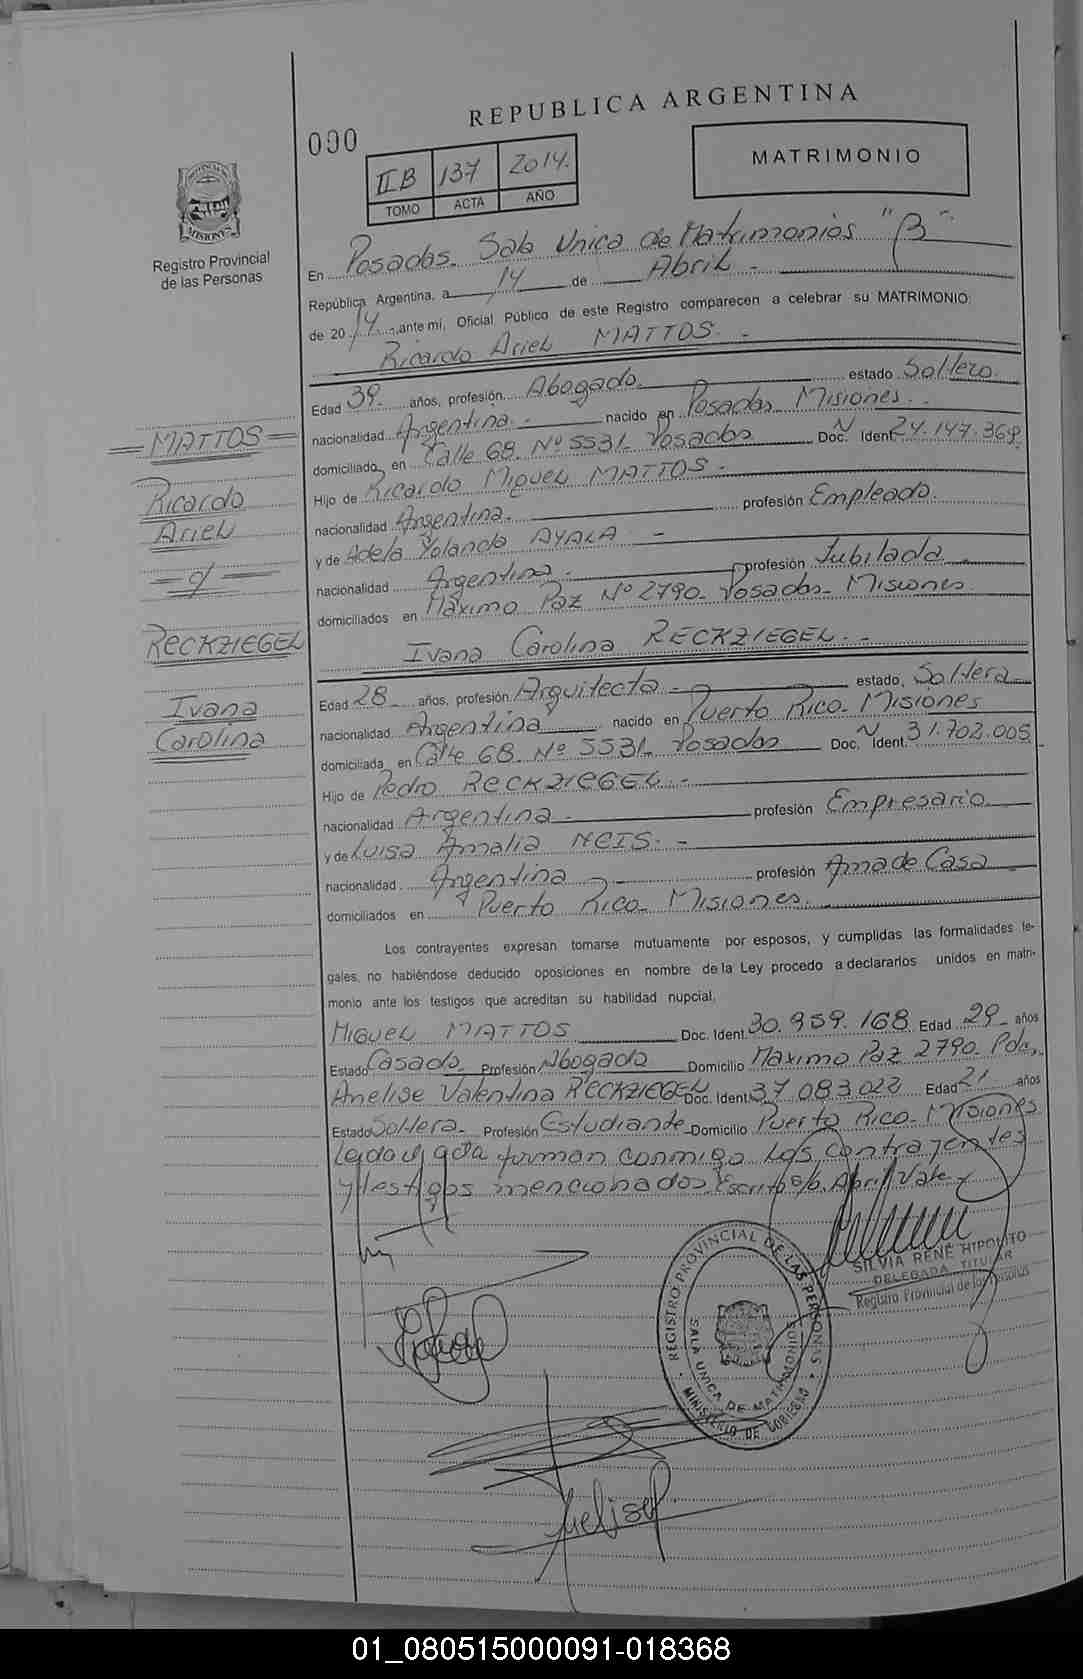 REPUBLICA ARGENTINA
000
II B 137 2014.
TOMO ACTA AÑO
MATRIMONIO
PROVINCIA DE MISIONES
Registro Provincial
de las Personas
En Posadas. Sala Unica de Matrimonios "B".
República Argentina, a 14 de Abril -
de 2014, ante mí, Oficial Público de este Registro comparecen a celebrar su MATRIMONIO:
Ricardo Ariel MATTOS. -
Edad 39. años, profesión Abogado estado Soltero.
nacionalidad Argentina. - nacido en Posadas Misiones. -
domiciliado en Calle 68. Nº 5531. Posadas Doc. N Ident. 24.147.369
Hijo de Ricardo Miguel MATTOS. -
nacionalidad Argentina. profesión Empleado.
y de Adela Yolanda AYALA. -
nacionalidad Argentina. profesión Jubilada
domiciliados en Máximo Paz Nº 2790. Posadas. Misiones
Ivana Carolina RECKZIEGEL. -
Edad 28 años, profesión Arquitecta estado, Soltera
nacionalidad Argentina nacido en Puerto Rico. Misiones
domiciliada en Calle 68. Nº 5531. Posadas Doc. N Ident. 31.703.005
Hijo de Pedro RECKZIEGEL. -
nacionalidad Argentina. profesión Empresario
y de Luisa Amalia NEIS. -
nacionalidad Argentina profesión Ama de Casa
domiciliados en Puerto Rico. Misiones.
Los contrayentes expresan tomarse mutuamente por esposos, y cumplidas las formalidades le-
gales, no habiéndose deducido oposiciones en nombre de la Ley procedo a declararlos unidos en matri-
monio ante los testigos que acreditan su habilidad nupcial,
Miguel MATTOS Doc. Ident. 30.959.168 Edad 29 años
Estado Casado Profesión Abogado Domicilio Máximo Paz 2790. Pdas,
Anelise Valentina RECKZIEGEL Doc. Ident. 37.083.022 Edad 21 años
Estado Soltera. Profesión Estudiante Domicilio Puerto Rico. Misiones
Leida el acta forman conmigo los contrayentes
y testigos mencionados. Escrito s/b. Abril Vale
MATTOS
Ricardo
Ariel
c/
RECKZIEGEL
Ivana
Carolina
SILVIA RENE HIPOLITO
DELEGADA TITULAR
Registro Provincial de las Personas
REGISTRO PROVINCIAL DE LAS PERSONAS
SALA UNICA DE MATRIMONIOS
MINISTERIO DE GOBIERNO
01_080515000091-018368